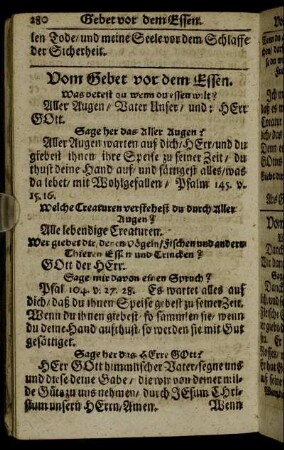 280 Gebet vor dem Essen.
ten Tode/ und meine Seele vor dem Schlaffe
der Sicherheit.
Vom Gebet vor dem Essen.
Was betest du wenn du essen wilt?
Aller Augen/ Vater Unser/ und: HErr
GOtt.
Sage her das Aller Augen?
Aller Augen warten auf dich/ HErr/ und du
giebest ihnen ihre Speise zu seiner Zeit/ du
thust deine Hand auf/ und sättigest alles/ was
da lebet/ mit Wohlgefallen/ Psalm 145. v.
15. 16.
Welche Creaturen verstehest du durch Aller
Augen?
Alle lebendige Creaturen.
Wer giebet dir, denen Vögeln/ Fischen und andern
Thieren Essen und Trincken?
GOtt der HErr.
Sage mir davon einen Spruch?
Psal 104. v. 27. 28. Es wartet alles auf
dich/ daß du ihnen Speise gebest zu seiner Zeit.
Wenn du ihnen giebest/ so sammlen sie/ wenn
du deine Hand aufthust/ so werden sie mit Gut
gesättiget.
Sage her das HErre GOtt?
HErr GOtt himmlischer Vater/ segne uns
und diese deine Gabe/ die wir von deiner mil-
de Güte zu uns nehmen/ durch JEsum CHri-
stum unsern HErrn/ Amen. Wenn